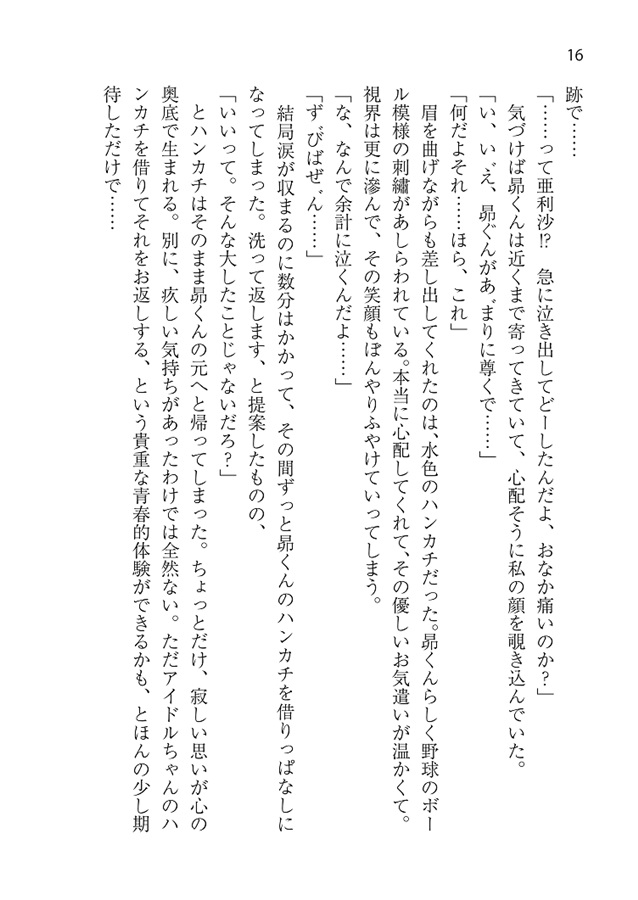 16
跡で……
「……って亜利沙!? 急に泣き出してどーしたんだよ、おなか痛いのか？」
気づけば昴くんは近くまで寄ってきていて、心配そうに私の顔を覗き込んでいた。
「い、い゛え、昴ぐんがあ゛まりに尊くで……」
「何だよそれ……ほら、これ」
眉を曲げながらも差し出してくれたのは、水色のハンカチだった。昴くんらしく野球のボー
ル模様の刺繡があしらわれている。本当に心配してくれて、その優しいお気遣いが温かくて。
視界は更に滲んで、その笑顔もぼんやりふやけていってしまう。
「な、なんで余計に泣くんだよ……」
「ず゛びばぜ゛ん……」
結局涙が収まるのに数分はかかって、その間ずっと昴くんのハンカチを借りっぱなしに
なってしまった。洗って返します、と提案したものの、
「いいって。そんな大したことじゃないだろ？」
とハンカチはそのまま昴くんの元へと帰ってしまった。ちょっとだけ、寂しい思いが心の
奥底で生まれる。別に、疚しい気持ちがあったわけでは全然ない。ただアイドルちゃんのハ
ンカチを借りてそれをお返しする、という貴重な青春的体験ができるかも、とほんの少し期
待しただけで……